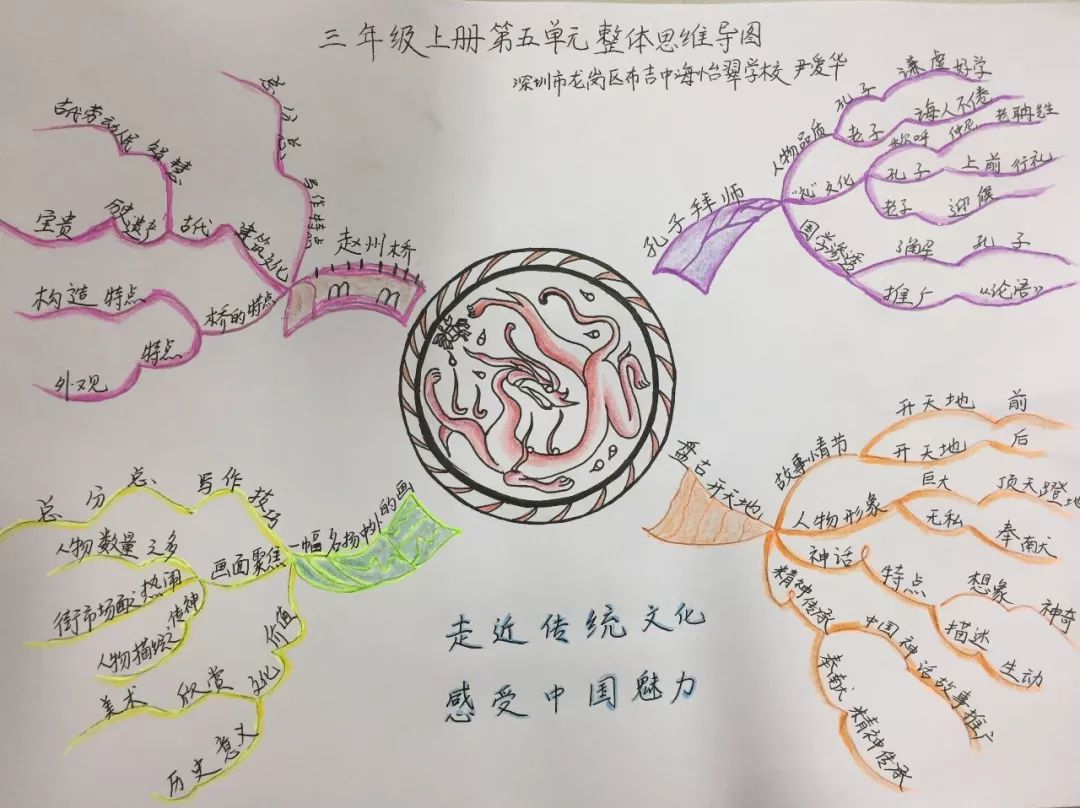 三年级上册第五单元整体思维导图
深圳市龙岗区布吉中海怡翠学校 尹爱华
赵州桥
写作特点
总分总
建筑文化
古代
智慧
古代劳动人民
遗产
宝贵
桥的特点
构造特点
特点
外观
孔子拜师
人物品质
孔子
谦虚好学
老子
诲人不倦
"礼"文化
称呼
仲尼
老聃先生
孔子
上前行礼
老子
迎候
国学渗透
了解
孔子
推广
《论语》
一幅名扬中外的画
写作技巧
总分总
画面聚焦
人物数量之多
街市场面热闹
人物描绘传神
价值
文化
美术欣赏
历史意义
盘古开天地
故事情节
开天地前
开天地后
人物形象
巨大
顶天蹬地
无私
奉献
神话
特点
想象
神奇
描述
生动
精神传承
中国神话故事推广
奉献精神传承
走近传统文化
感受中国魅力